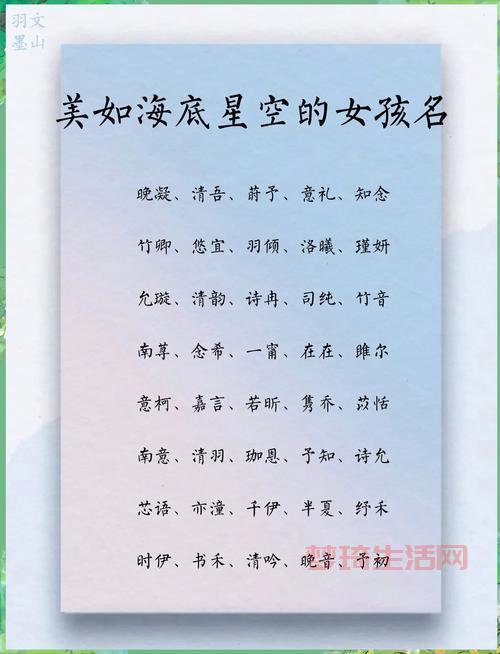 羽文
墨山
美如海底星空的女孩名
晚凝、清吾、莳予、意礼、知念
竹卿、悠宜、羽倾、洛曦、瑾妍
允璇、清韵、诗冉、司纯、竹音
南荨、念希、一甯、在在、雎尔
意柯、嘉言、若昕、隽乔、苡恬
南意、清羽、珈恩、予知、诗允
芯语、亦潼、千伊、半夏、纾禾
时伊、书禾、清吟、晚音、予初
梦琦生活网